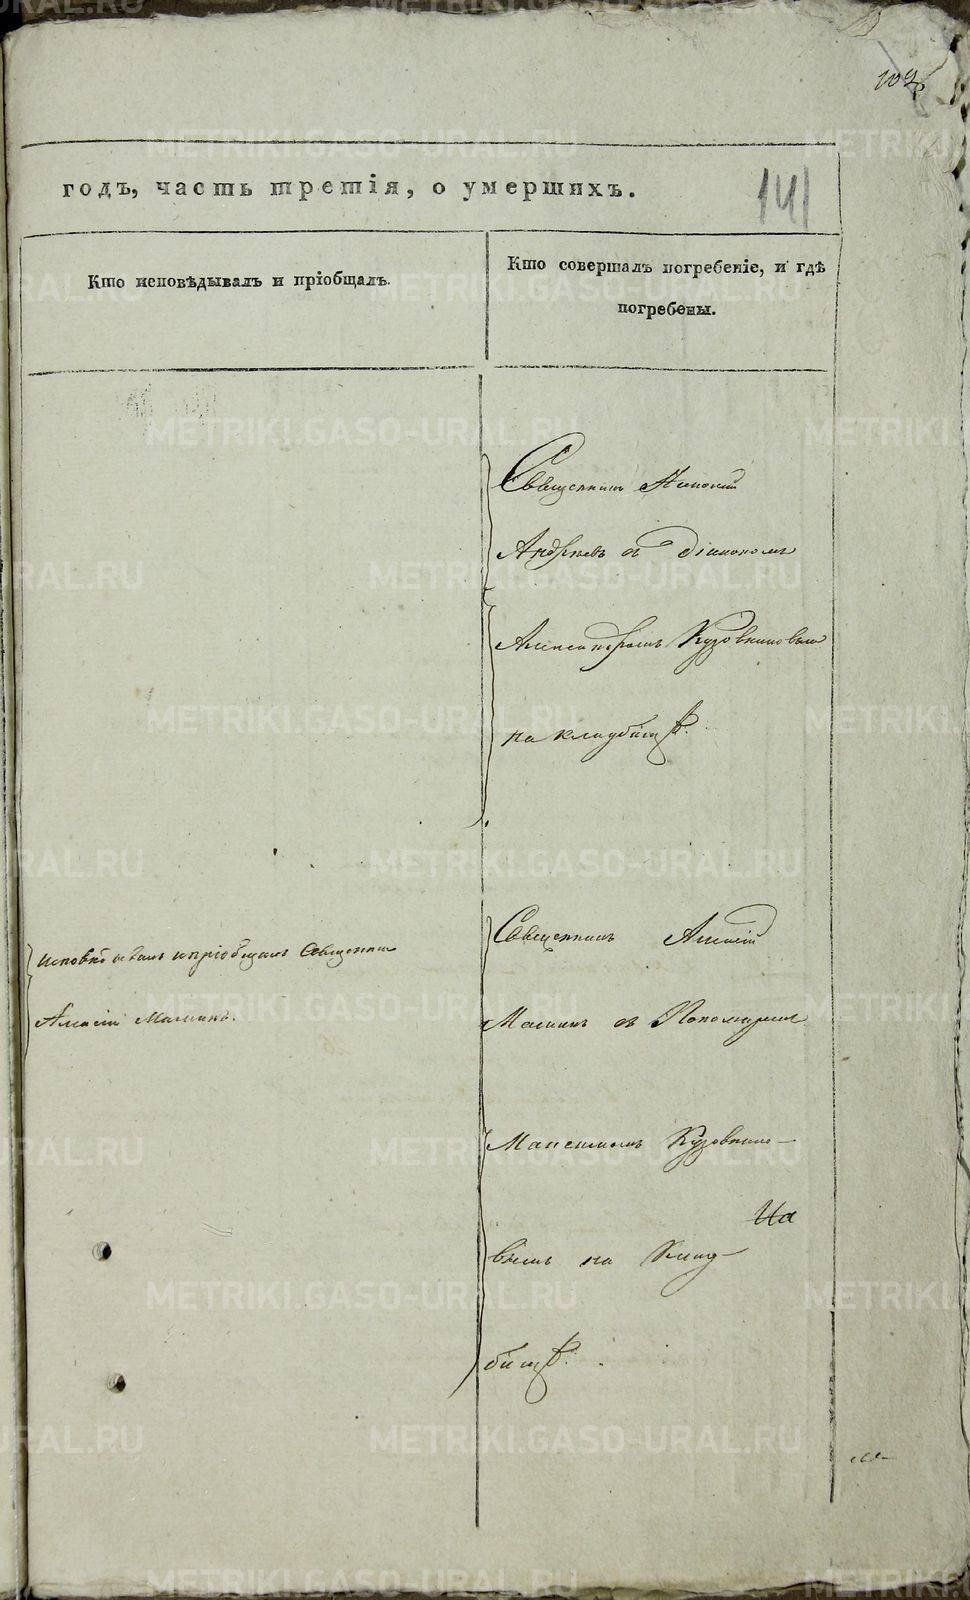 109
годъ, часть третія, о умершихъ.
141
Кто исповѣдывалъ и пріобщалъ.
Кто совершалъ погребеніе, и гдѣ
погребены.
Священникъ
Андреевъ съ Діакономъ
Александромъ Кузовниковымъ
на кладбищѣ.
Священникъ Алексій
Исповѣдывалъ и пріобщалъ Священникъ
Алексій Малининъ.
съ Пономаремъ
Максимомъ Кузовнико-
На
вымъ на Клад-
бищѣ.
METRIKI.GASO-URAL.RU